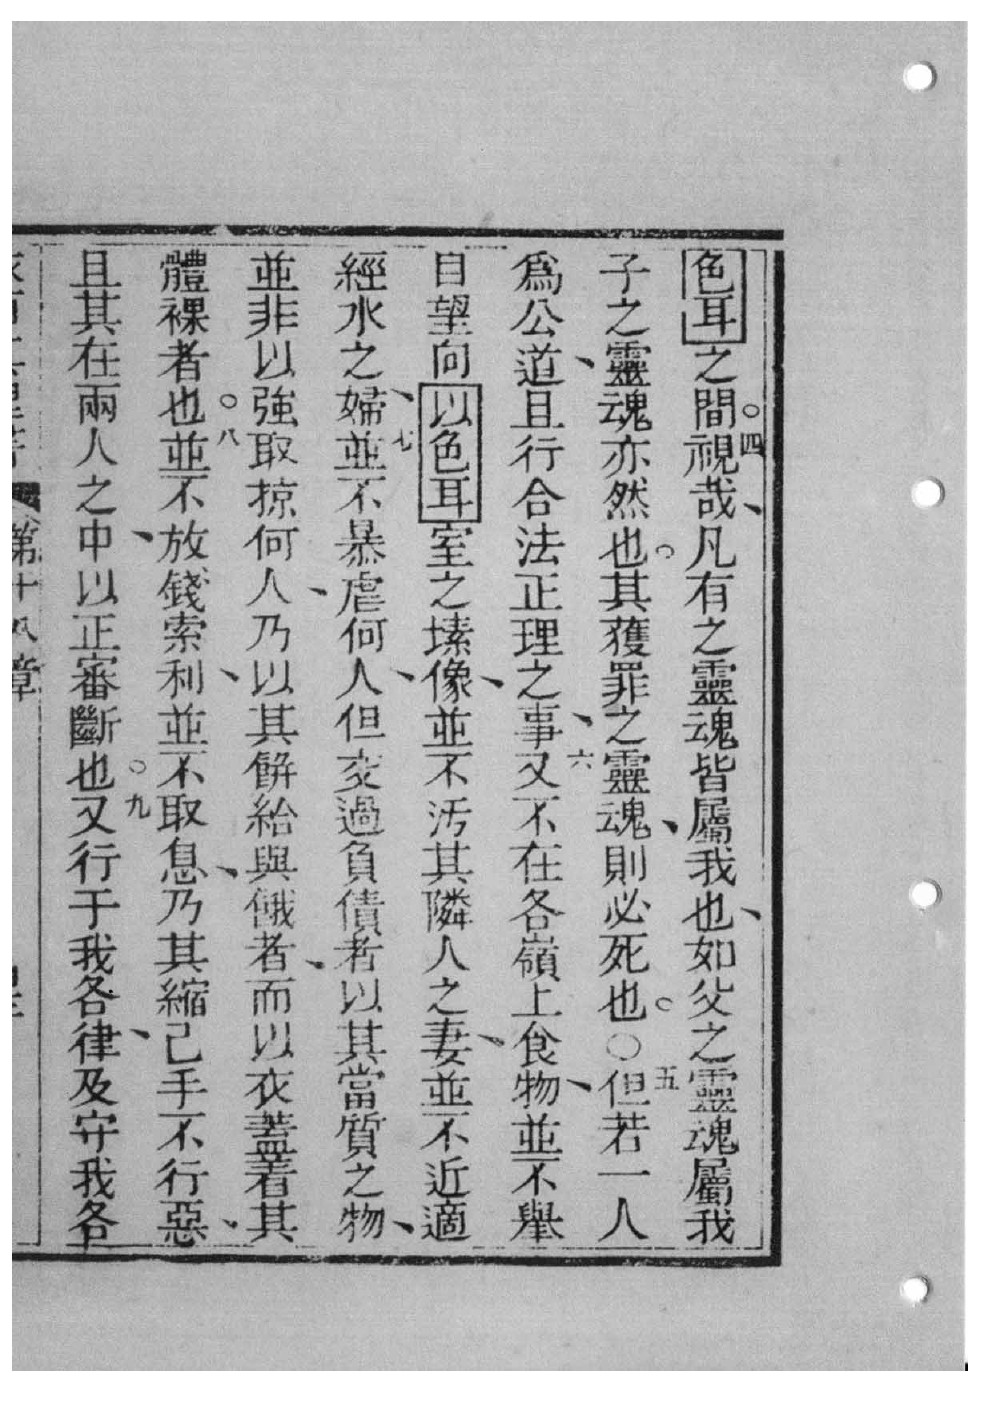 色耳之間。四視哉、凡有之靈魂皆屬我也、如父之靈魂屬我
子之靈魂亦然也。其獲罪之靈魂、則必死也。〇五但若一人
爲公道、且行合法正理之事、六又不在各嶺上食物、並不舉
目望向以色耳室之𡎺像、並不汚其隣人之妻、並不近適
經水之婦、七並不暴虐何人、但交過負債者以其當質之物、
並非以強取掠何人、乃以其餅給與餓者、而以衣蓋着其
體裸者也。八並不放錢索利、並不取息、乃其縮己手不行惡、
且其在兩人之中、以正審斷也。九又行于我各律、及守我各
第十八章